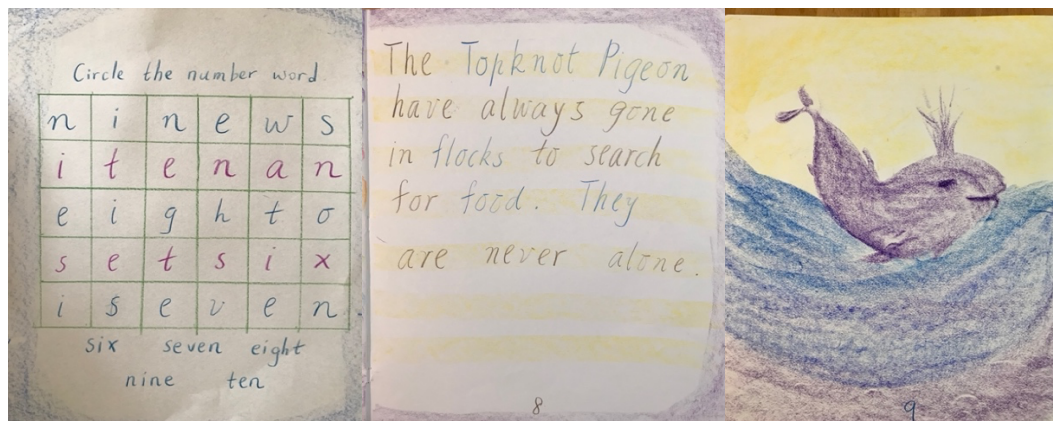 Circle the number word
n i n e w s
i t e n a n
e i g h t o
s e t s i x
i s e v e n
six seven eight
nine ten
The Topknot Pigeon
have always gone
in flocks to search
for food. They
are never alone.
8
9